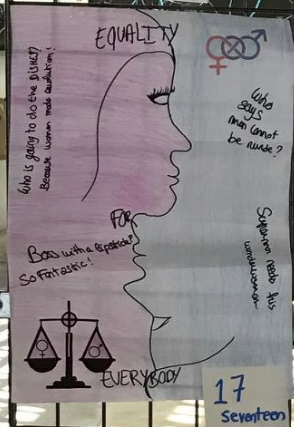 EQUALITY
Who is going to do the DISHES?
Because woman made revolution!
Who
says
man cannot
be nurse?
FOR
Boss with a lipstick?
So Fantastic!
Superman needs his
wonderwoman
EVERYBODY
17
seventeen